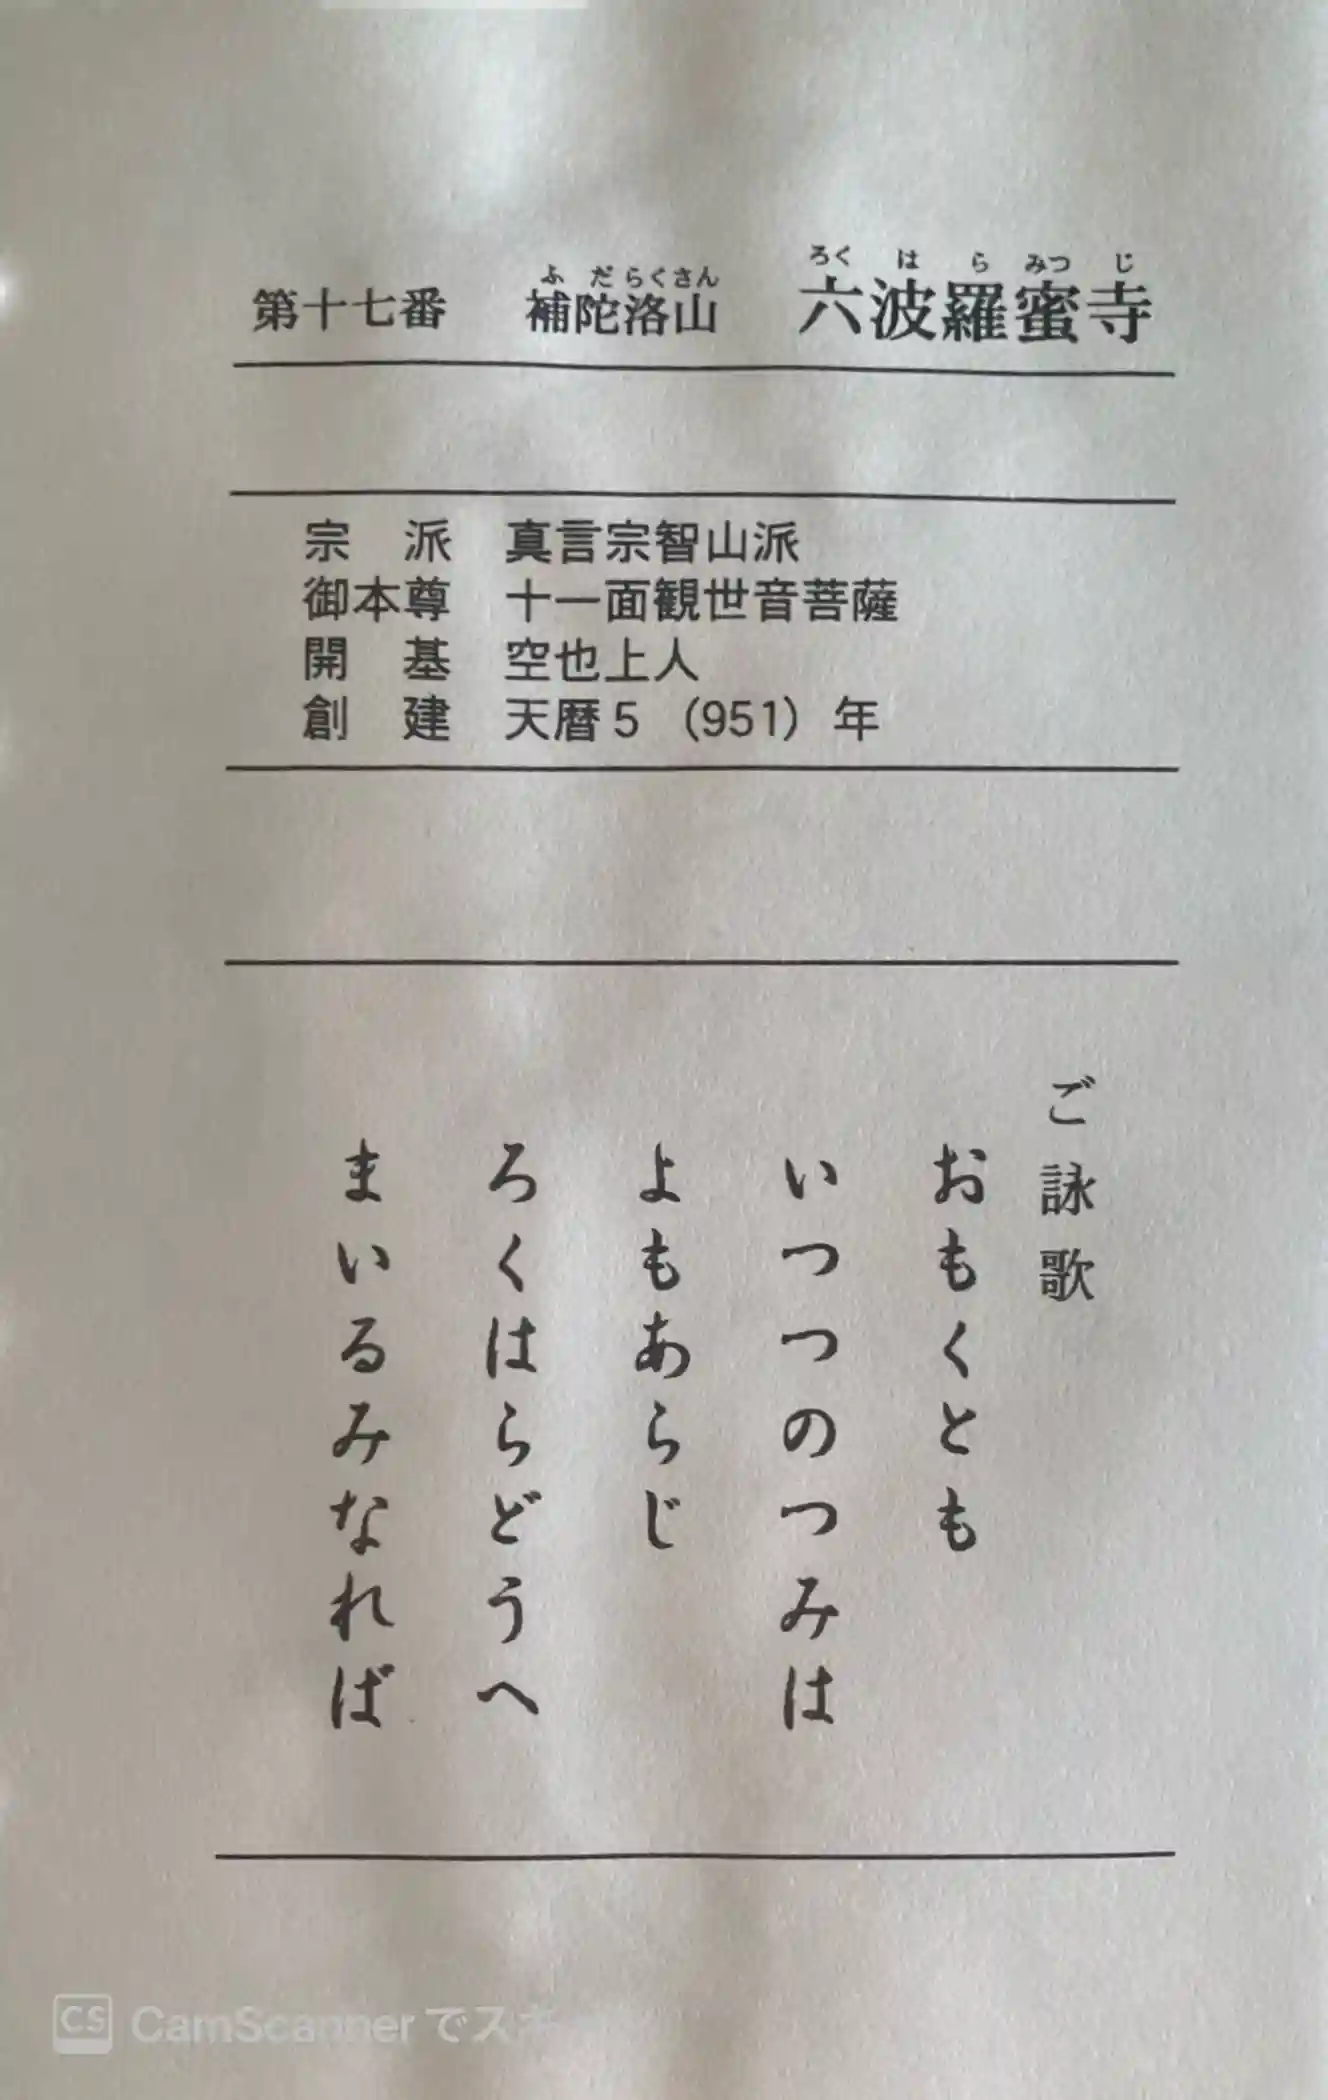 第十七番　補陀洛山　六波羅蜜寺
ふだらくさん　ろくはらみつじ
宗　派　真言宗智山派
御本尊　十一面観世音菩薩
開　基　空也上人
創　建　天暦5（951）年
ご詠歌
おもくとも
いつつのつみは
よもあらじ
ろくはらどうへ
まいるみなれば
CS CamScannerでスキ